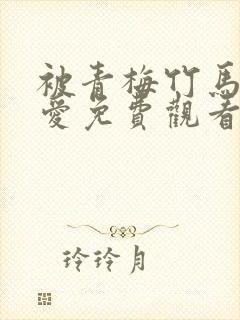 被青梅竹馬
愛免費觀看
玲玲月